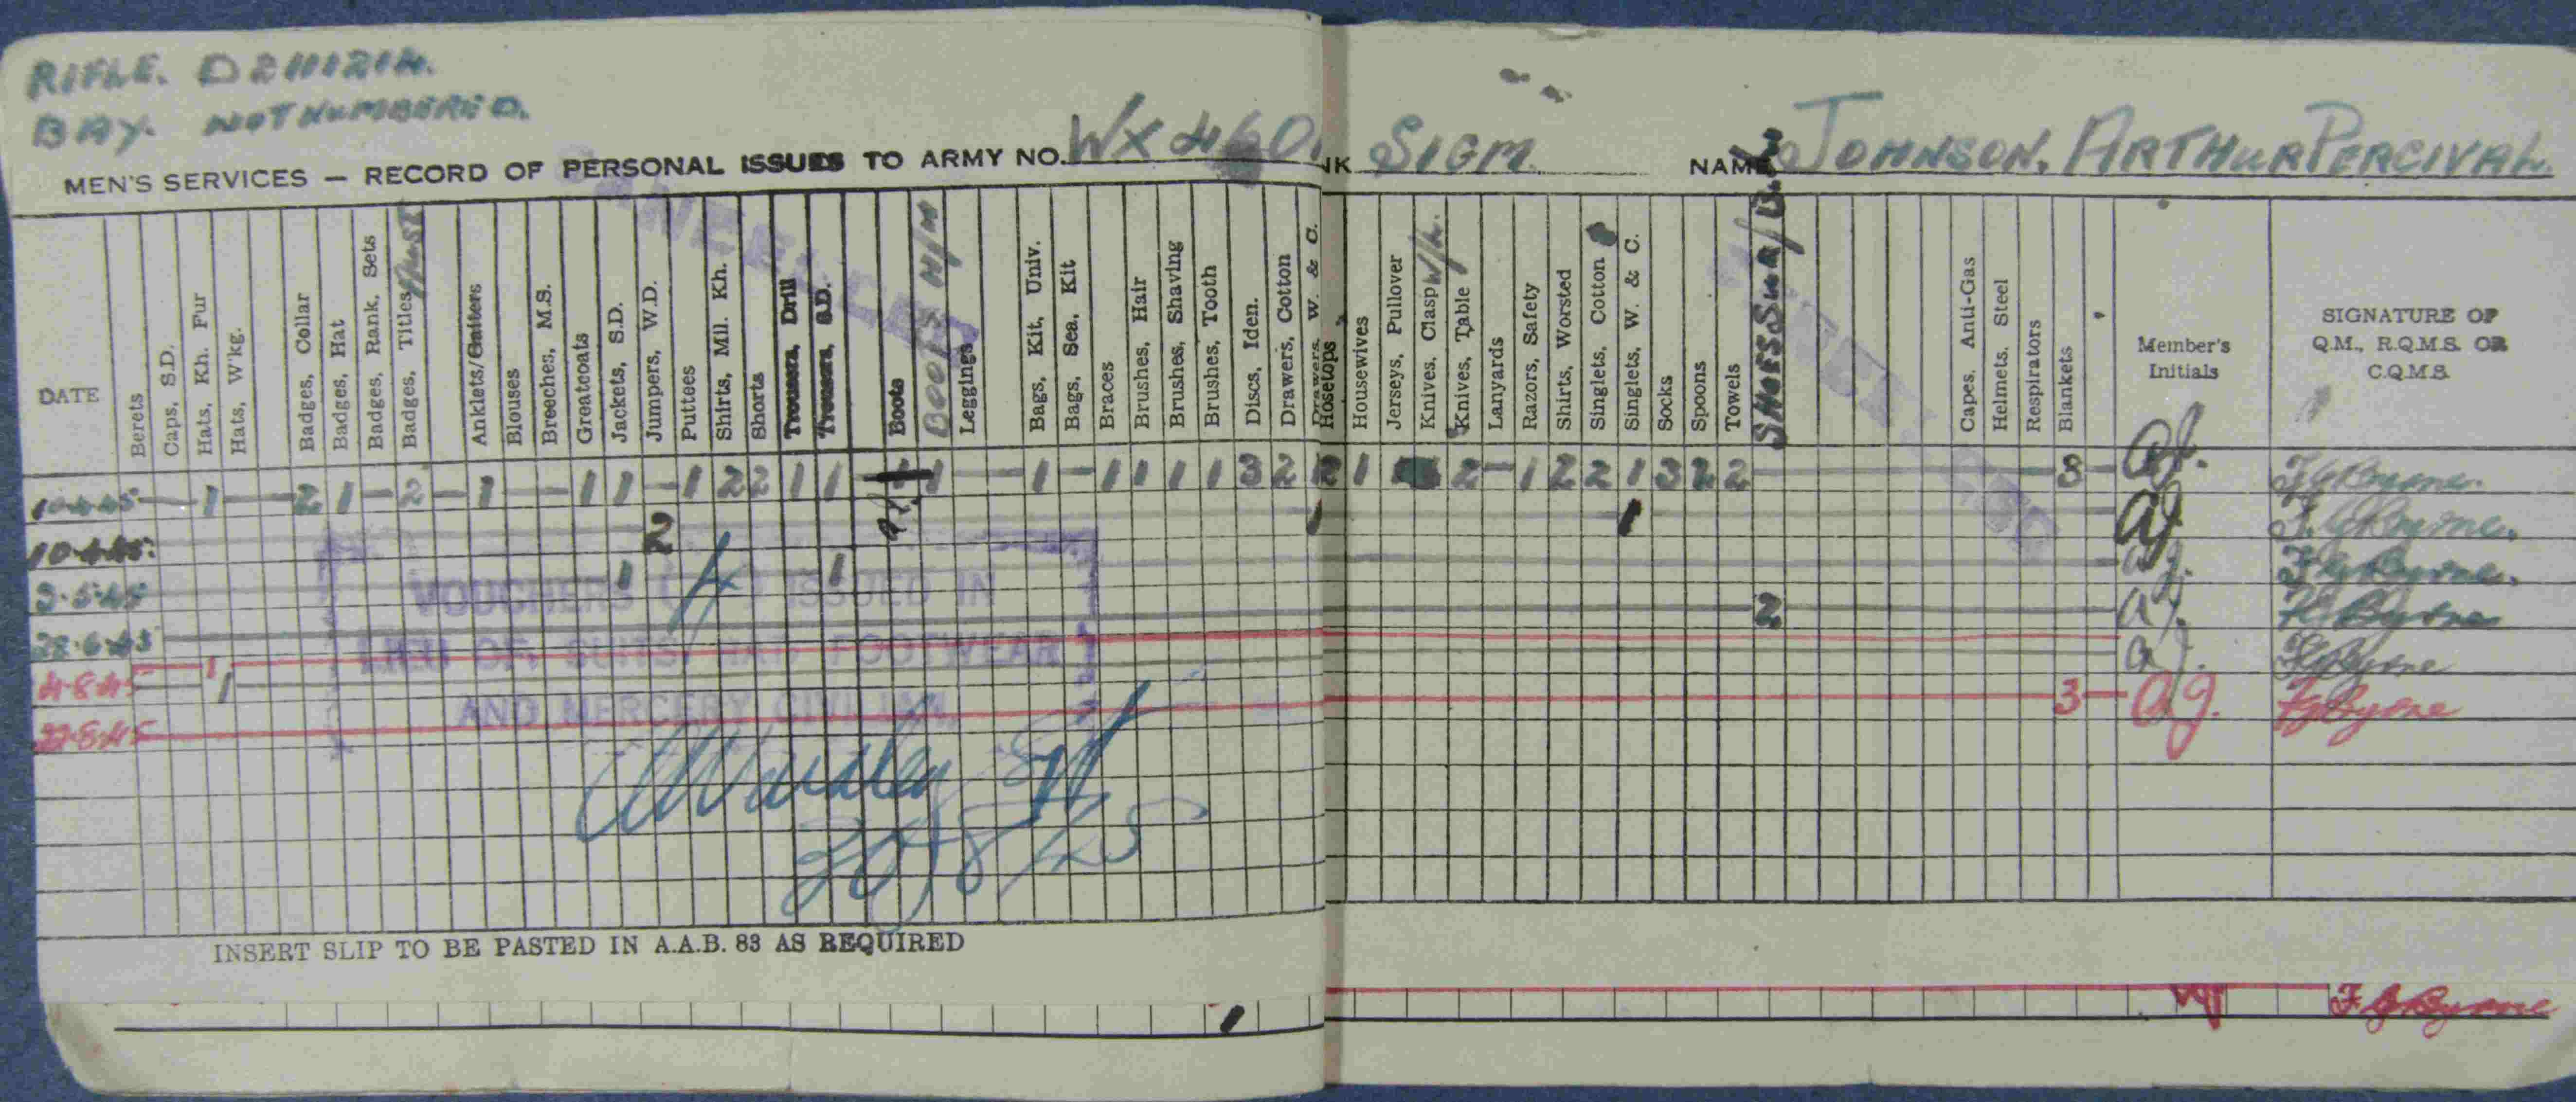 RIFLE. D2111214.
BAY. NOT NUMBERED.
MEN'S SERVICES — RECORD OF PERSONAL ISSUES TO ARMY NO. WX 460 NK SIGM. NAME JOHNSON, ARTHUR PERCIVAL
DATE
Berets
Caps, S.D.
Hats, Kh. Fur
Hats, W'kg.
Badges, Collar
Badges, Hat
Badges, Rank, Sets
Badges, Titles
Anklets/Gaiters
Blouses
Breeches, M.S.
Greatcoats
Jackets, S.D.
Jumpers, W.D.
Puttees
Shirts, Mil. Kh.
Shorts
Trousers, Drill
Trousers, S.D.
Boots
BOOTS N/M
Leggings
Bags, Kit, Univ.
Bags, Sea, Kit
Braces
Brushes, Hair
Brushes, Shaving
Brushes, Tooth
Discs, Iden.
Drawers, Cotton
Drawers, W. & C.
Hosetops
Housewives
Jerseys, Pullover
Knives, Clasp
Knives, Table
Lanyards
Razors, Safety
Shirts, Worsted
Singlets, Cotton
Singlets, W. & C.
Socks
Spoons
Towels
Capes, Anti-Gas
Helmets, Steel
Respirators
Blankets
Member's
Initials
SIGNATURE OF
Q.M., R.Q.M.S. OR
C.Q.M.S.
CANCELLED
10.4.45 1 2 1 2 1 1 1 1 2 2 1 1 1 1 1 1 1 1 3 2 2 1 2 1 2 2 1 3 2 2 3 AJ. F G Byrne.
10.4.45. 2 1 1 AJ F. G Byrne.
2.5.45 1 1 AJ. F G Byrne.
28.6.45 2 AJ. F G Byrne
4.8.45 1 1 AJ. F G Byrne
22.8.45 3 AJ. F G Byrne
VOUCHERS (4) ISSUED IN
LIEU OF, SUITS, HAT FOOTWEAR
AND MERCERY CIVILIAN.
30/8/45
INSERT SLIP TO BE PASTED IN A.A.B. 83 AS REQUIRED
1 F G Byrne